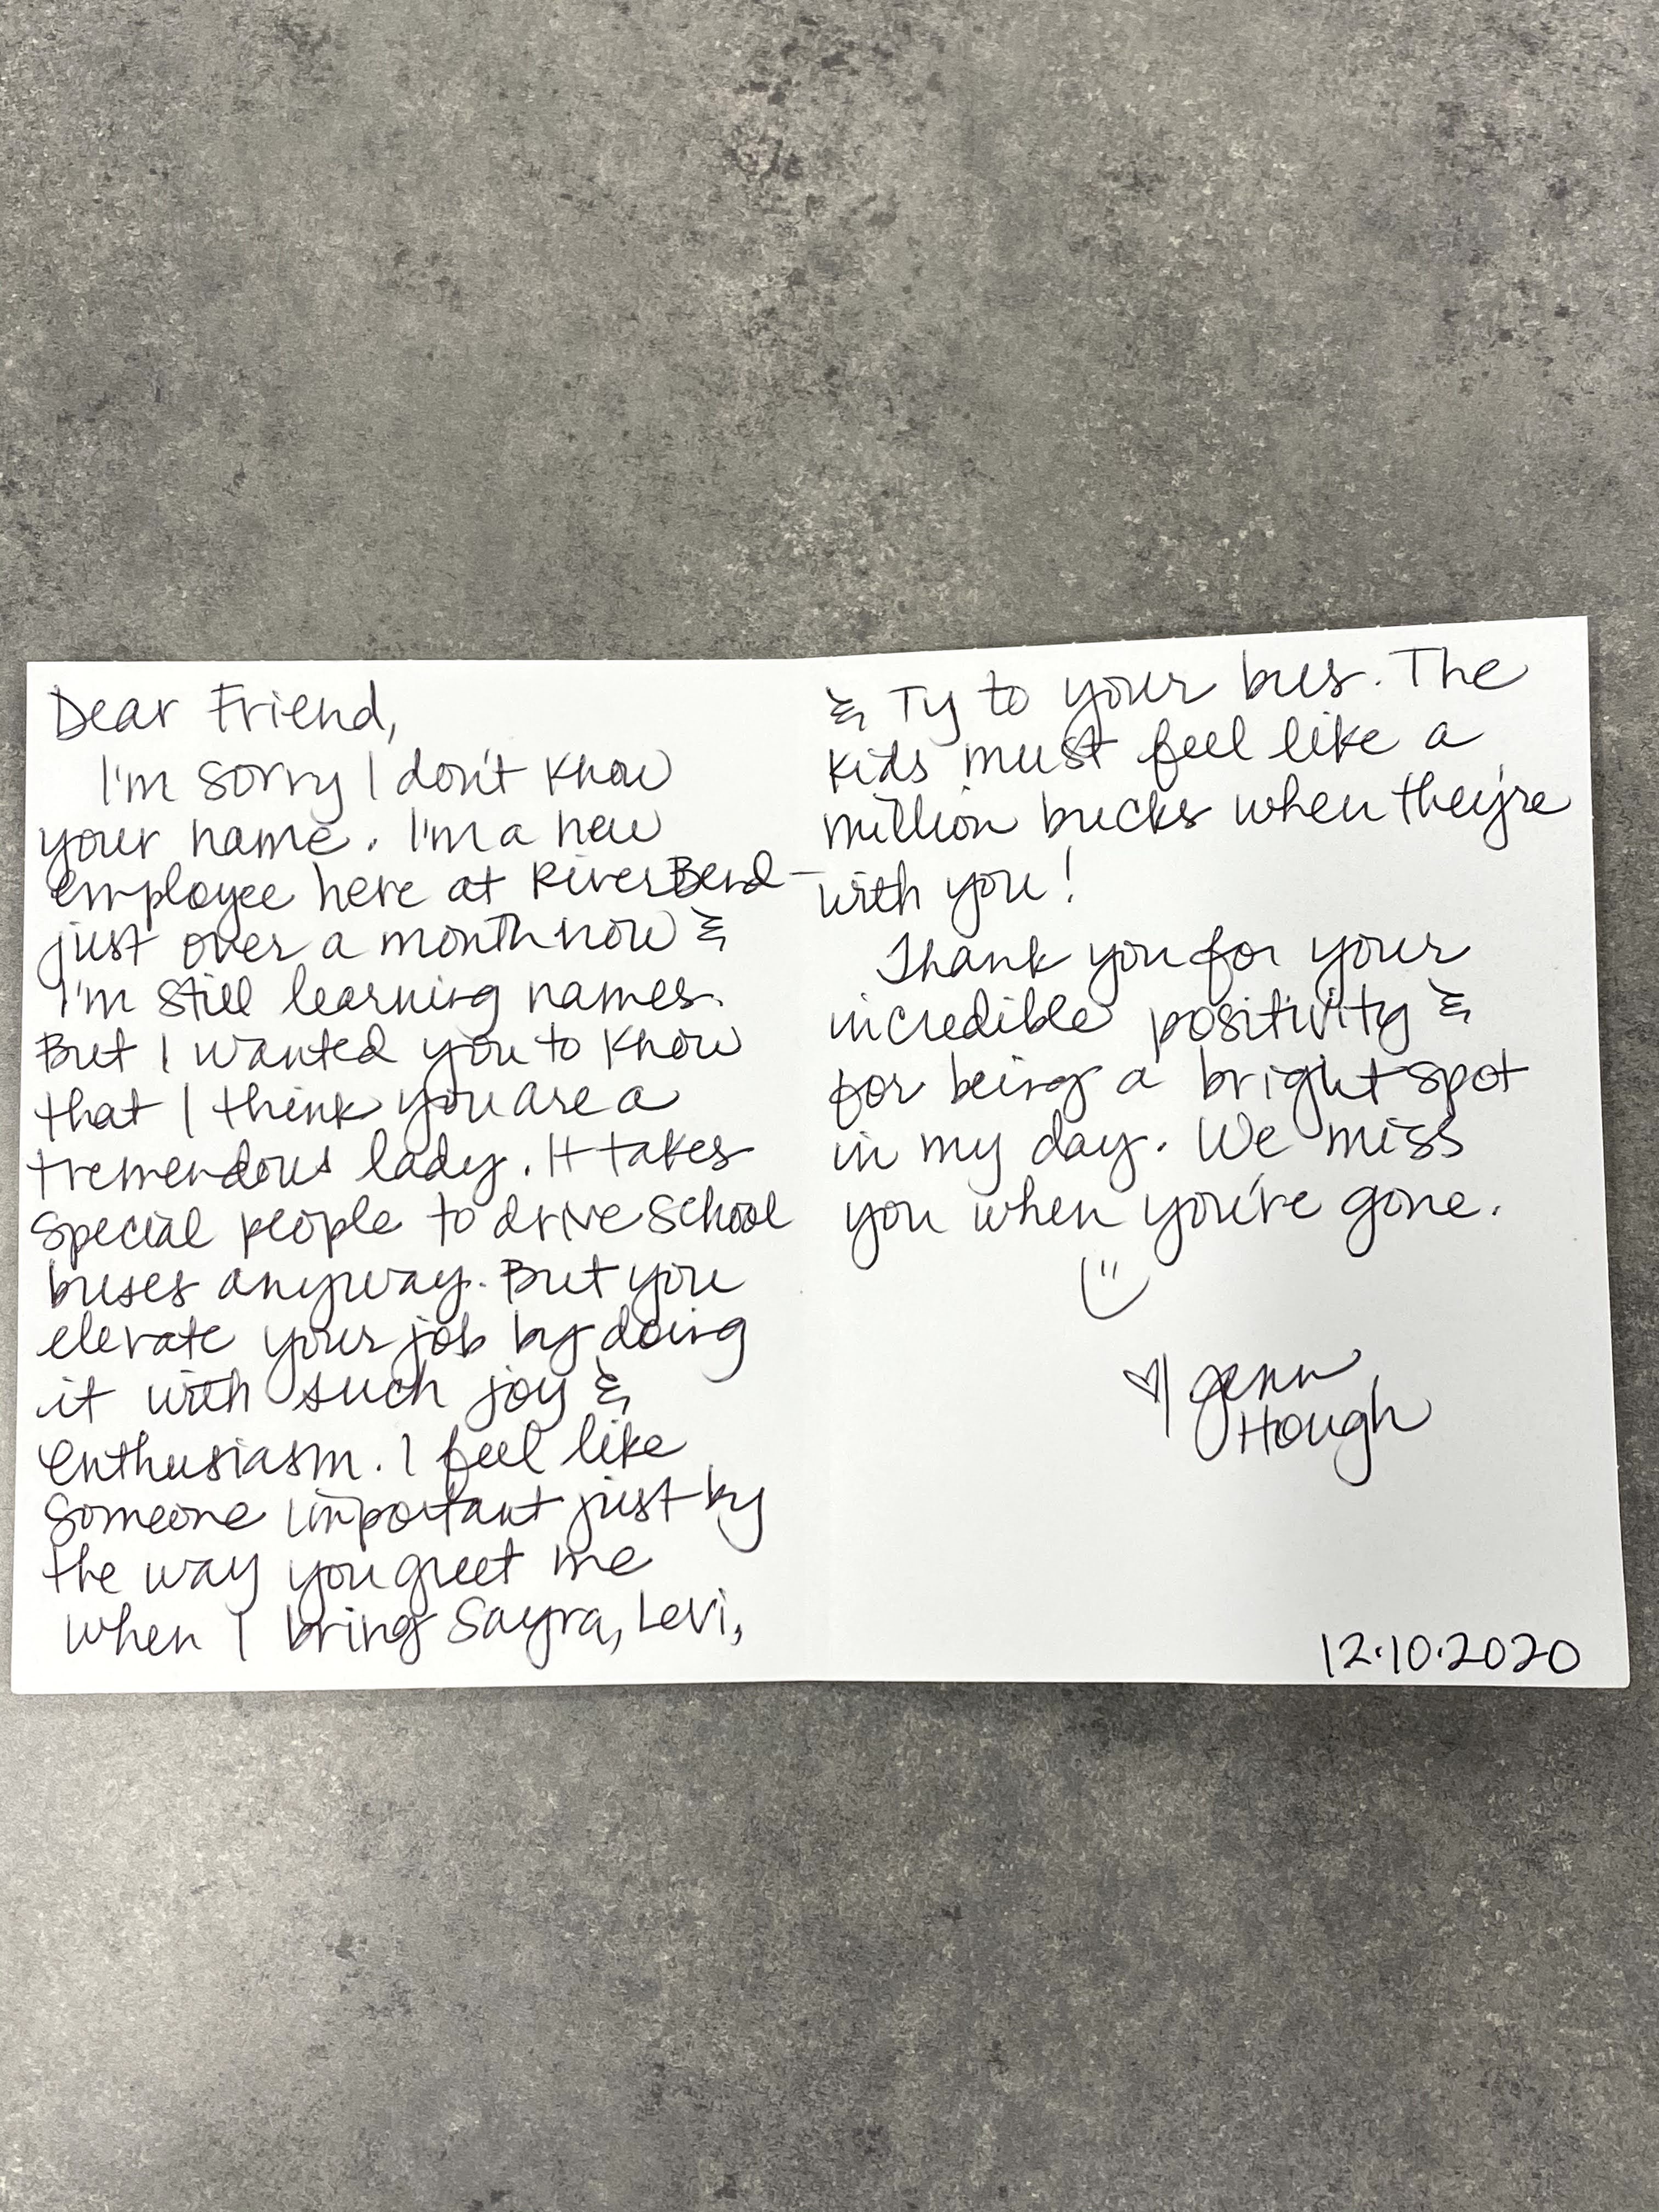 Dear Friend,
I'm sorry I don't know
your name. I'm a new
employee here at RiverBend -
just over a month now &
I'm still learning names.
But I wanted you to know
that I think you are a
tremendous lady. It takes
special people to drive school
buses anyway. But you
elevate your job by doing
it with such joy &
enthusiasm. I feel like
someone important just by
the way you greet me
when I bring Sayra, Levi,
& Ty to your bus. The
kids must feel like a
million bucks when they're
with you!
Thank you for your
incredible positivity &
for being a bright spot
in my day. We miss
you when you're gone.
Jenn
Hough
12.10.2020